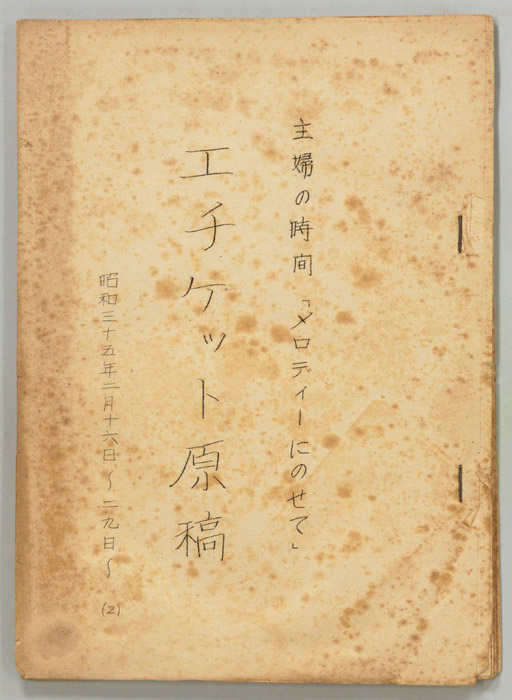 主婦の時間「メロディーにのせて」
エチケット原稿
昭和三十五年二月十六日〜二九日〜
(2)